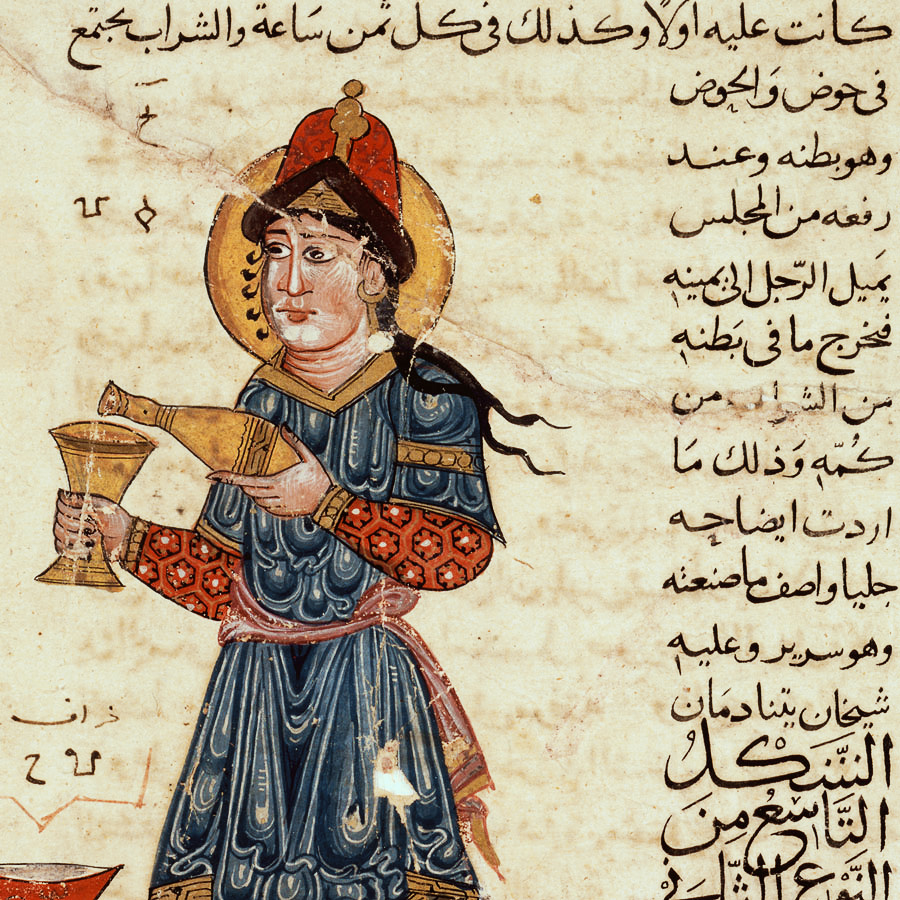 كانت عليه اولا وكذلك فى كل ثمن ساعة والشراب يجتمع
فى حوض وَالحوض
وهو بطنه وعند
رفعه من المجلس
يَميل الرّجل الى يمينه
فيخرج ما فى بَطنه
من الشراب من
كُمّه وَذلك مَا
اردت ايضاحه
جليا واصف ما صنعته
وهو سرير وعليه
شيخان يتنادمَان
الشَّكلُ
التَّاسعُ مِنَ
النَّوع الثَّانى